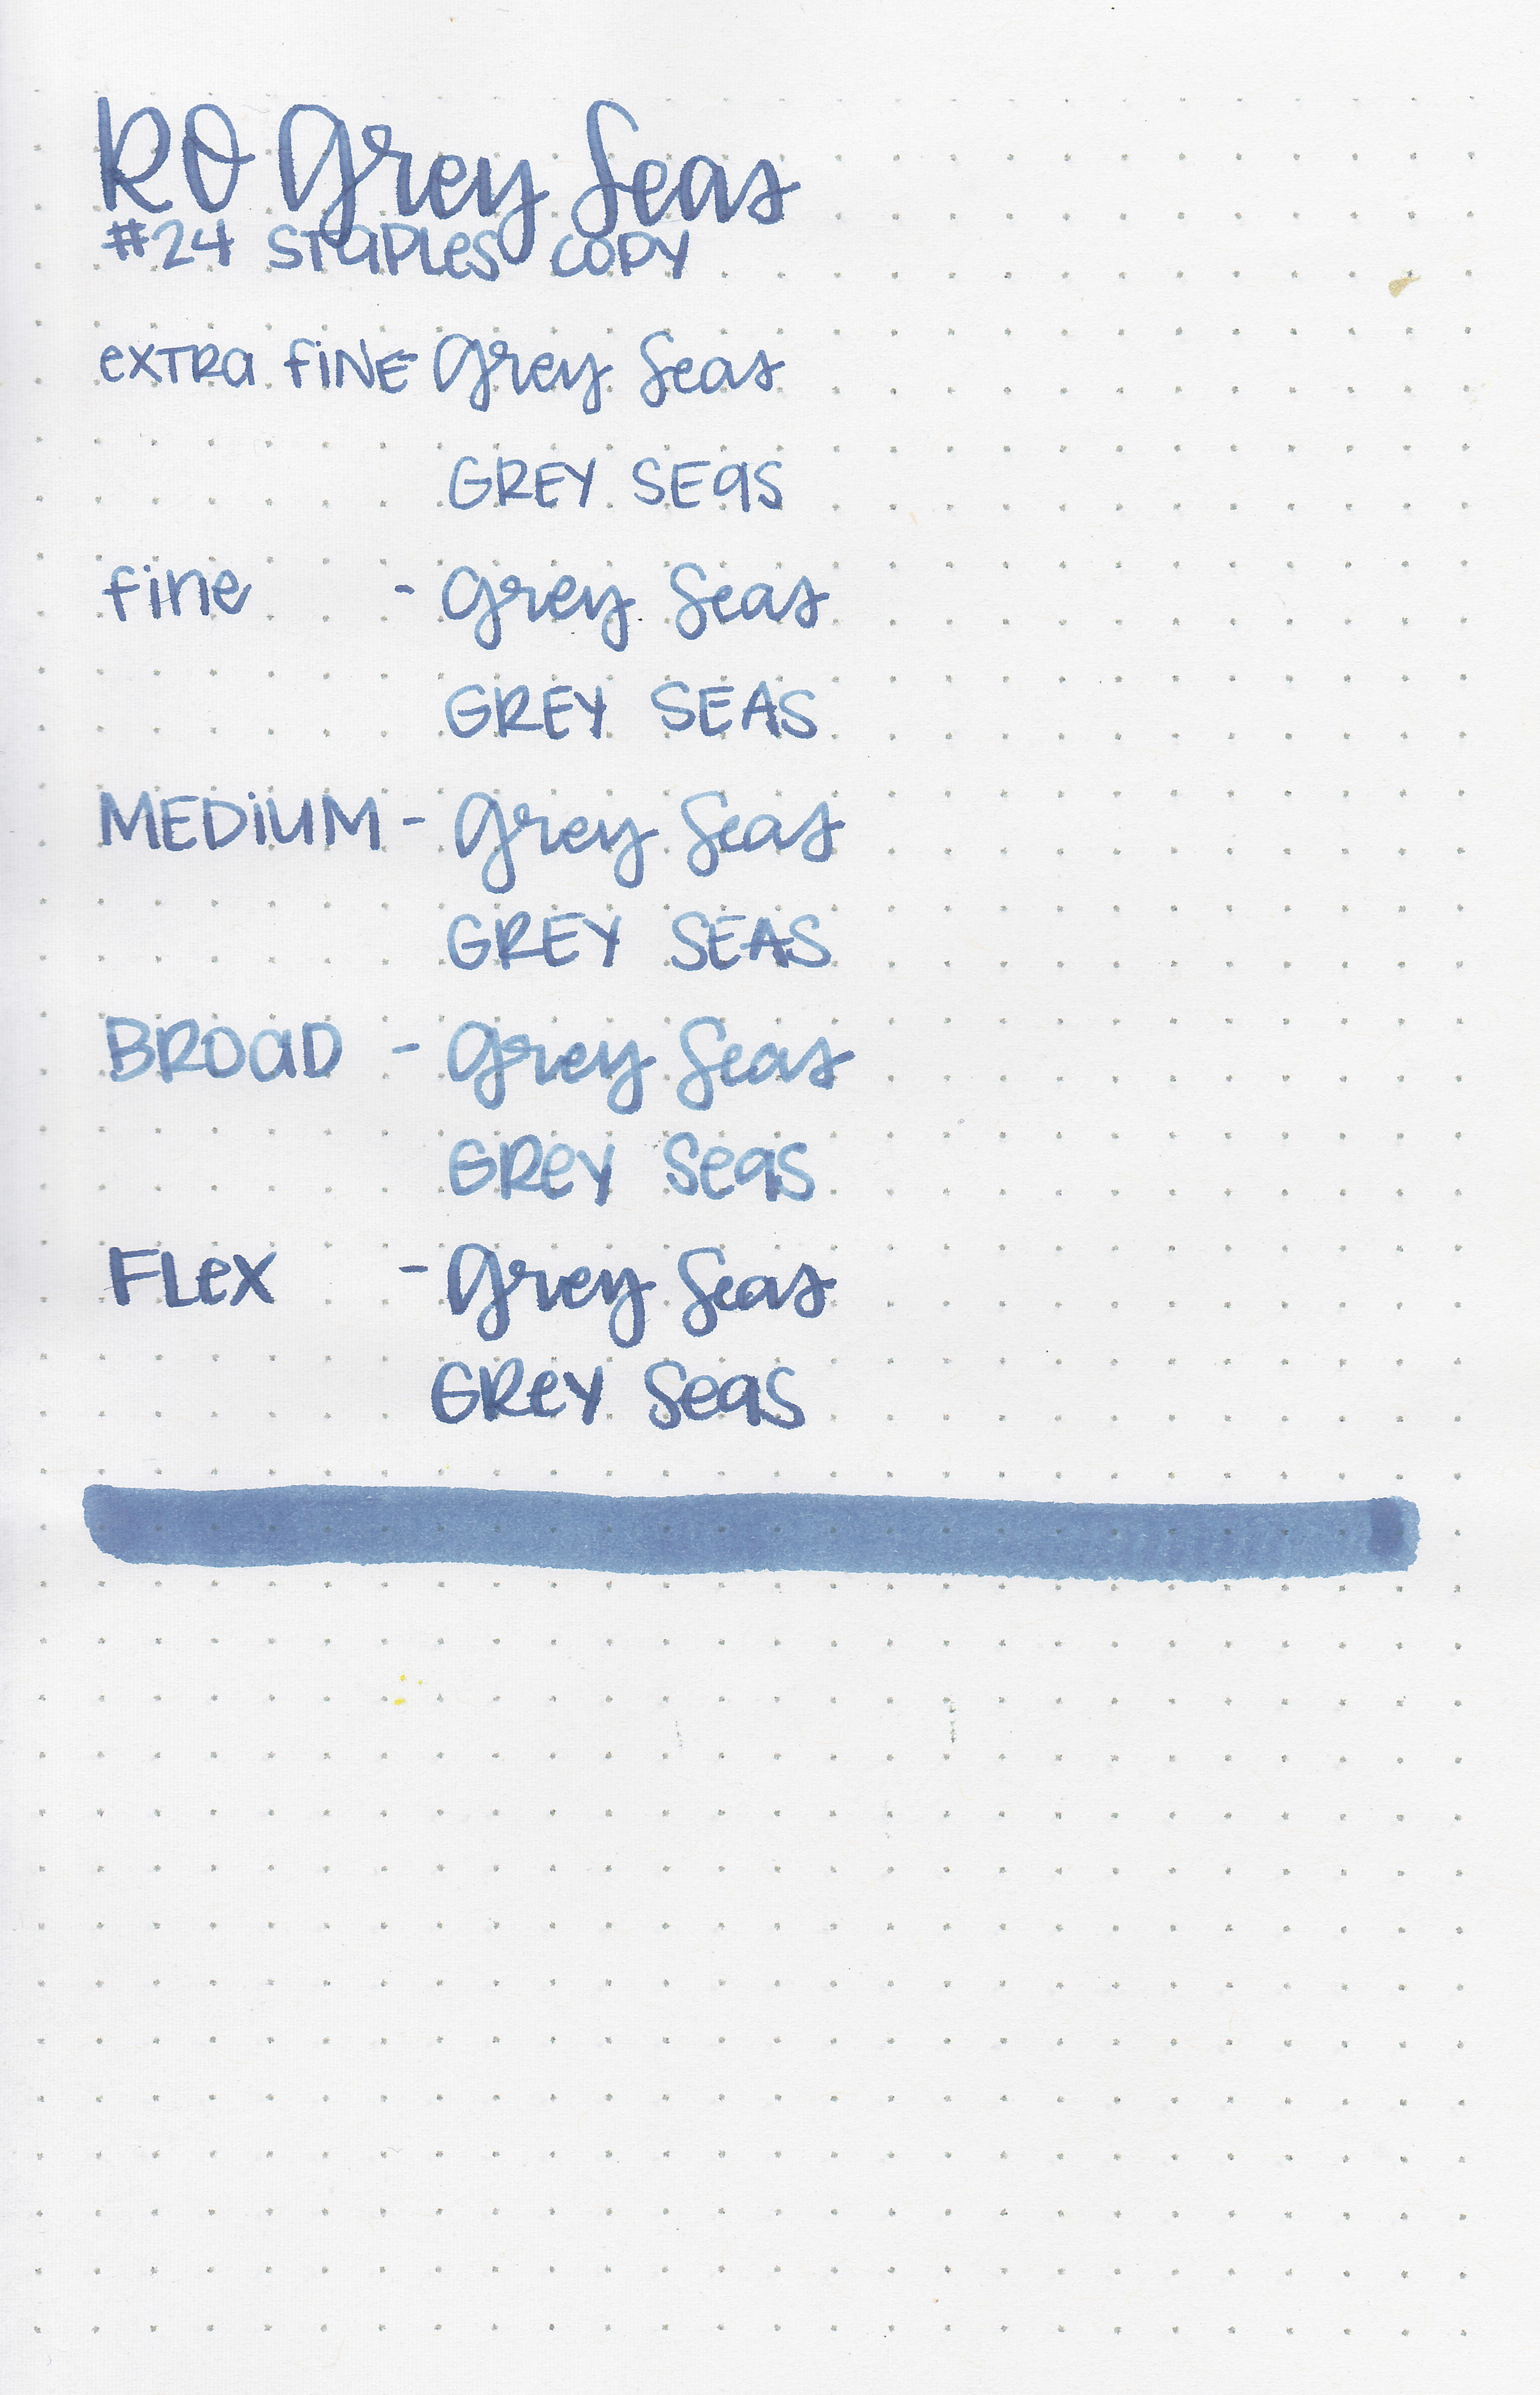 RO Grey Seas
#24 STaPLes COPY
eXTRa fiNE Grey Seas
GREY SEaS
fine - Grey Seas
GREY SEAS
MEDiUM - Grey Seas
GREY SEAS
BROaD - Grey Seas
GReY SeaS
FLeX - Grey Seas
GReY SeaS